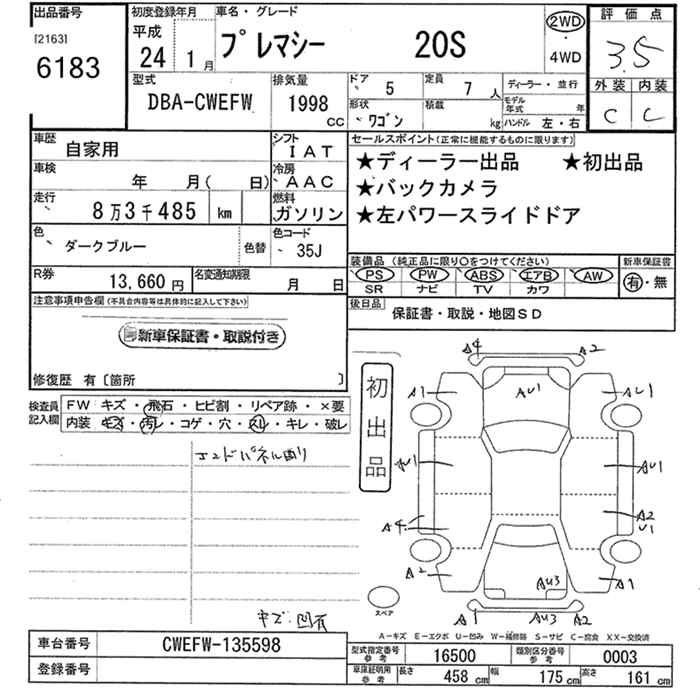 出品番号 初度登録年月 車名・グレード 2WD 評価点
[2163] 平成 プレマシー 20S ・ 3.5
6183 24 1月 4WD 外装 内装
型式 排気量 ドア 5 定員 7人 ディーラー・並行 C C
DBA-CWEFW 1998 CC 形状 ワゴン 積載 kg モデル年式 年
ハンドル 左・右
車歴 自家用 シフト IAT セールスポイント(正常に機能するものに限ります)
車検 年 月( 日) 冷房 AAC ★ディーラー出品 ★初出品
走行 8万3千485 km 燃料 ガソリン ★バックカメラ
★左パワースライドドア
色 ダークブルー 色替 色コード 35J
装備品(純正品に限り○をつけてください) 新車保証書
R券 13,660円 名変通知期限 月 日 PS PW ABS エアB AW 有・無
SR ナビ TV カワ
注意事項申告欄(不具合内容等は具体的に記入して下さい) 後日品 保証書・取説・地図SD
新車保証書・取説付き
修復歴 有〔箇所 〕
検査員記入欄 FW キズ・飛石・ヒビ割・リペア跡・×要
内装 キズ・汚レ・コゲ・穴・スレ・キレ・破レ
初出品
エンドパネル凹り
キズ 凹有
A4 A2
A1 AU1 U1
U1 AU1
A4 A2
U1
A2 AU3 A1
スペア A1 AU3 A2
A-キズ E-エクボ U-凹み W-補修跡 S-サビ C-腐食 XX-交換済
車台番号 CWEFW-135598 型式指定番号 参考 16500 類別区分番号 参考 0003
登録番号 車庫証明用 参考 長さ 458cm 幅 175cm 高さ 161cm